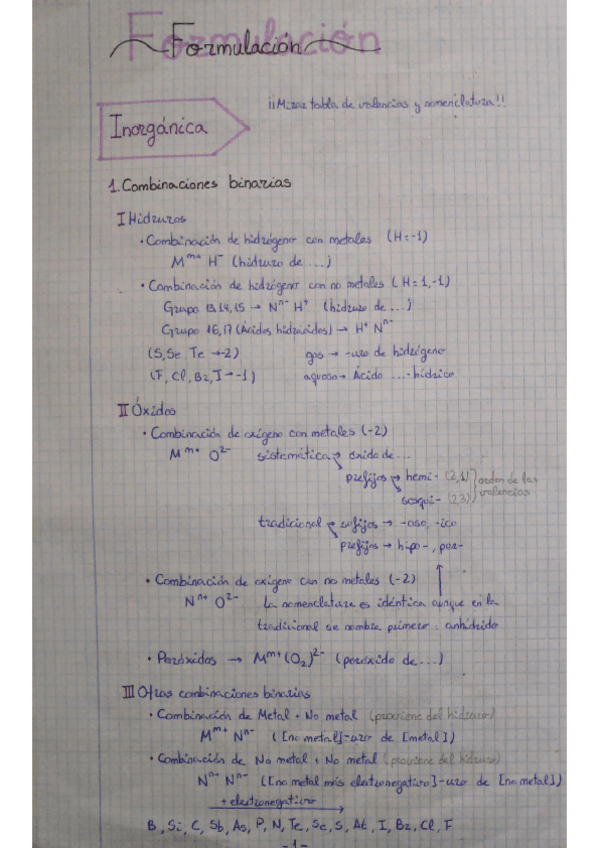 Formulación
¡¡Mirar tabla de valencias y nomenclatura!!
Inorgánica
1. Combinaciones binarias
I Hidruros
• Combinación de hidrógeno con metales (H=-1)
M^m+ H^- (hidruro de ...)
• Combinación de hidrógeno con no metales (H=1,-1)
Grupo 13,14,15 → N^n- H^+ (hidruro de ...)
Grupo 16,17 (Ácidos hidrácidos) → H^+ N^n-
(S, Se, Te → -2) gas → -uro de hidrógeno
(F, Cl, Br, I → -1) acuoso → Ácido ...-hídrico
II Óxidos
• Combinación de oxígeno con metales (-2)
M^m+ O^2- sistemática → óxido de...
prefijos → hemi- (2,1) orden de las
sesqui- (2,3) valencias
tradicional → sufijos → -oso, -ico
prefijos → hipo-, per-
• Combinación de oxígeno con no metales (-2)
N^n+ O^2- La nomenclatura es idéntica aunque en la
tradicional se nombra primero: anhídrido
• Peróxidos → M^m+ (O₂)^2- (peróxido de ...)
III Otras combinaciones binarias
• Combinación de Metal + No metal (proviene del hidruro)
M^m+ N^n- ([no metal]-uro de [metal])
• Combinación de No metal + No metal (proviene del hidruro)
N^n+ N^n- ([no metal más electronegativo]-uro de [no metal])
+ electronegativo
B, Si, C, Sb, As, P, N, Te, Se, S, At, I, Br, Cl, F
-1-